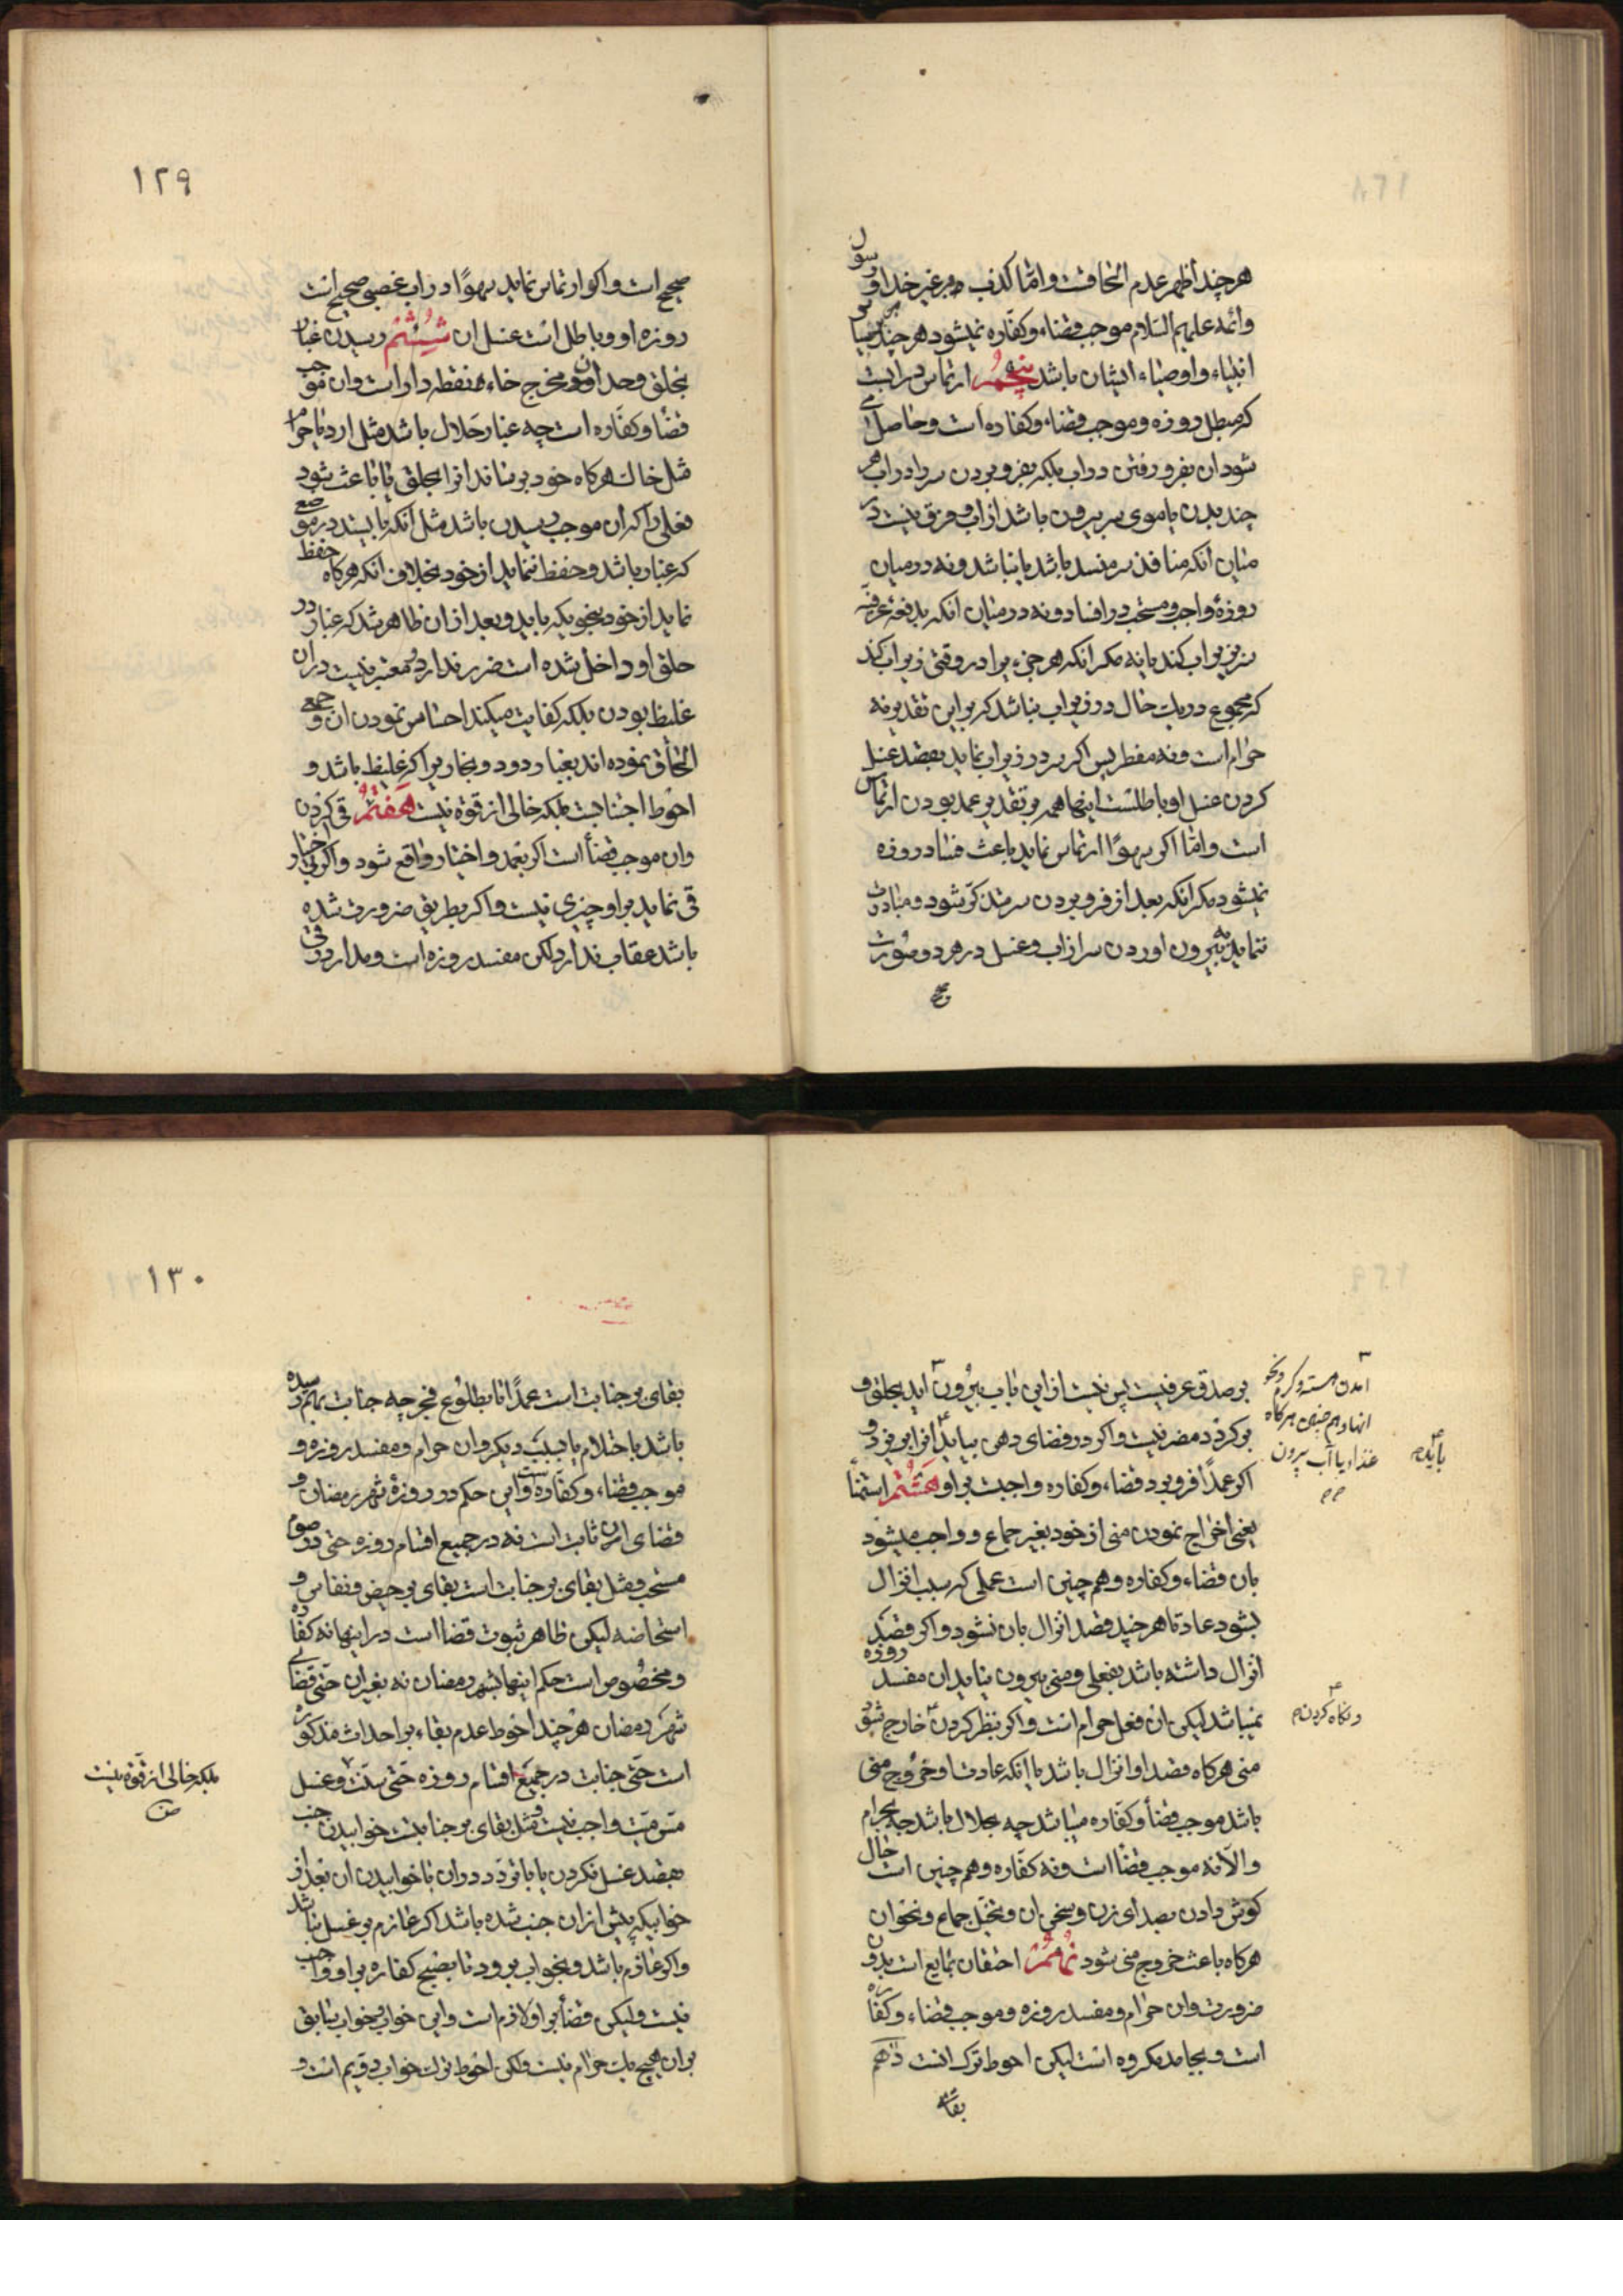 هر چند اظهر عدم الحاقست و اما کذب بر غیر خدا و رسول
وائمه علیهم السلام موجب قضاء وکفاره نمیشود هر چند بر سایر
انبیاء واوصیاء ایشان باشد پنجم ارتماس در ابست
که مبطل روزه وموجب قضاء وکفاره است وحاصل می
شود ان بفرو رفتن در اب بلکه بفرو بردن سر در اب هر
چند بدن یا موی سر بیرون باشد از اب وفرق نیست در
میان انکه منافذ سر منسد باشد یا نباشد ونه در میان
روزهٔ واجب ومستحب در افساد ونه در میان انکه بدفعه عرفیّه
سر زیر اب کند یا نه مکر انکه هر جزء یرا در وقتی زیر اب کند
که مجموع در یک حال در زیر اب نباشد که بر این تقدیر نه
حرام است ونه مفطر پس اکر سر در زیر اب نماید بقصد غسل
کردن غسل او باطلست اینها همه بر تقدیر عمد بودن ارتماس
است واما اکر سهوًا ارتماس نماید باعث فساد روزه
نمیشود مکر انکه بعد از فرو بردن سر متذکّر شود ومبادرت
ننماید به بیرون اوردن سر از اب وغسل در هر دو صورت
صح
۱۲۹
صحیح است واکر ارتماس نماید سهوًا در اب غصبی صحیح است
روزه او وباطل است غسل ان شیشم رسیدن غبار
بحلق وحد ان مخرج خاء نقطه دار است وان موجب
قضا وکفاره است چه غبار حلال باشد مثل ارد یا حرام
مثل خاک هر کاه خود برساند انرا بحلق یا باعث شود
فعلی را که ان موجب رسیدن باشد مثل انکه بایستد در موضعی
که غبار باشد وحفظ ننماید از خود بخلاف انکه هر کاه حفظ
نماید از خود بنحویکه باید وبعد از ان ظاهر شد که غبار در
حلق او داخل شده است ضرر ندارد ومعتبر نیست در ان
غلیظ بودن بلکه کفایت میکند احساس نمودن ان وجمعی
الحاق نموده اند بغبار دود وبخار یرا کر غلیظ باشد و
احوط اجتنابست بلکه خالی از قوه نیست هفتم قی کردن
وان موجب قضأ است اکر بعمد واختیار واقع شود واکر بی اختیار
قی نماید بر او چیزی نیست واکر بطریق ضرورت شده
باشد عقاب ندارد لکن مفسد روزه است ومدار در قی
بر صدق عرفیست پس نیست از این باب بیرون اید بحلق و
بر کردد مضر نیست واکر در فضای دهن بیاید انرا بریزد و
اکر عمدًا فرو برد قضاء وکفاره واجبست بر او هشتم استمناء
یعنی اخراج نمودن منی از خود بغیر جماع وواجب میشود
بان قضاء وکفاره وهم چنین است عملی که سبب انزال
بشود عادتا هر چند قصد انزال بان نشود واکر قصد
انزال داشته باشد بفعلی ومنی بیرون نیاید ان مفسد روزه
نمیباشد لیکن ان فعل حرام است واکر بنظر کردن خارج شود
منی هر کاه قصد او انزال باشد یا انکه عادت او خروج منی
باشد موجب قضأ وکفاره میباشد چه بحلال باشد چه بحرام
والا نه موجب قضأ است ونه کفاره وهم چنین است حال
کوش دادن بصدای زن وسخن ان وتخیّل جماع ونحو ان
هر کاه باعث خروج منی شود نهم احتقان بمایع است بدون
ضرورت وان حرام ومفسد روزه وموجب قضاء وکفاره
است وبجامد مکروه است لیکن احوط ترک انست دهم
بقای
انها وهم چنین هر کاه
غذا یا آب بیرون
باید
ونکاه کردن
۱۳۰
بقای بر جنابت است عمدًا تا بطلوع فجر چه جنابت بهم رسیده
باشد باحتلام یا بسبب دیکر وان حرام ومفسد روزه و
موجب قضاء وکفاره است واین حکم در روزهٔ شهر رمضان و
قضای ان ثابت است نه در جمیع اقسام روزه حتی در صوم
مستحب ومثل بقای بر جنابت است بقای بر حیض ونفاس و
استحاضه لیکن ظاهر ثبوت قضا است در اینها نه کفاره
ومخصوص است حکم اینها بشهر رمضان نه بغیر ان حتی قضای
شهر رمضان هر چند احوط عدم بقاء بر احداث مذکوره
است حتی جنابت در جمیع اقسام روزه حتی سنّت وغسل
مسّ میّت واجب نیست ومثل بقای بر جنابتست خوابیدن جنب
بقصد غسل نکردن یا با تردّد در ان یا خوابیدن ان بعد از
خوابیکه پیش از ان جنب شده باشد اکر عازم بر غسل نباشد
واکر عازم باشد وبخواب برود تا بصبح کفاره بر او واجب
نیست ولیکن قضأ بر او لازم است واین خواب وخواب سابق
بر ان هیچ یک حرام نیست ولکن احوط ترک خواب دویم است و
بلکه خالی از قوّه نیست